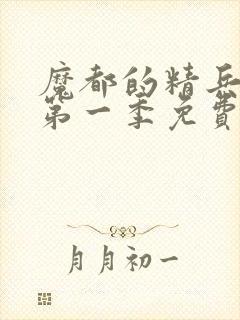 魔都的精兵
第一季免費
月月初一